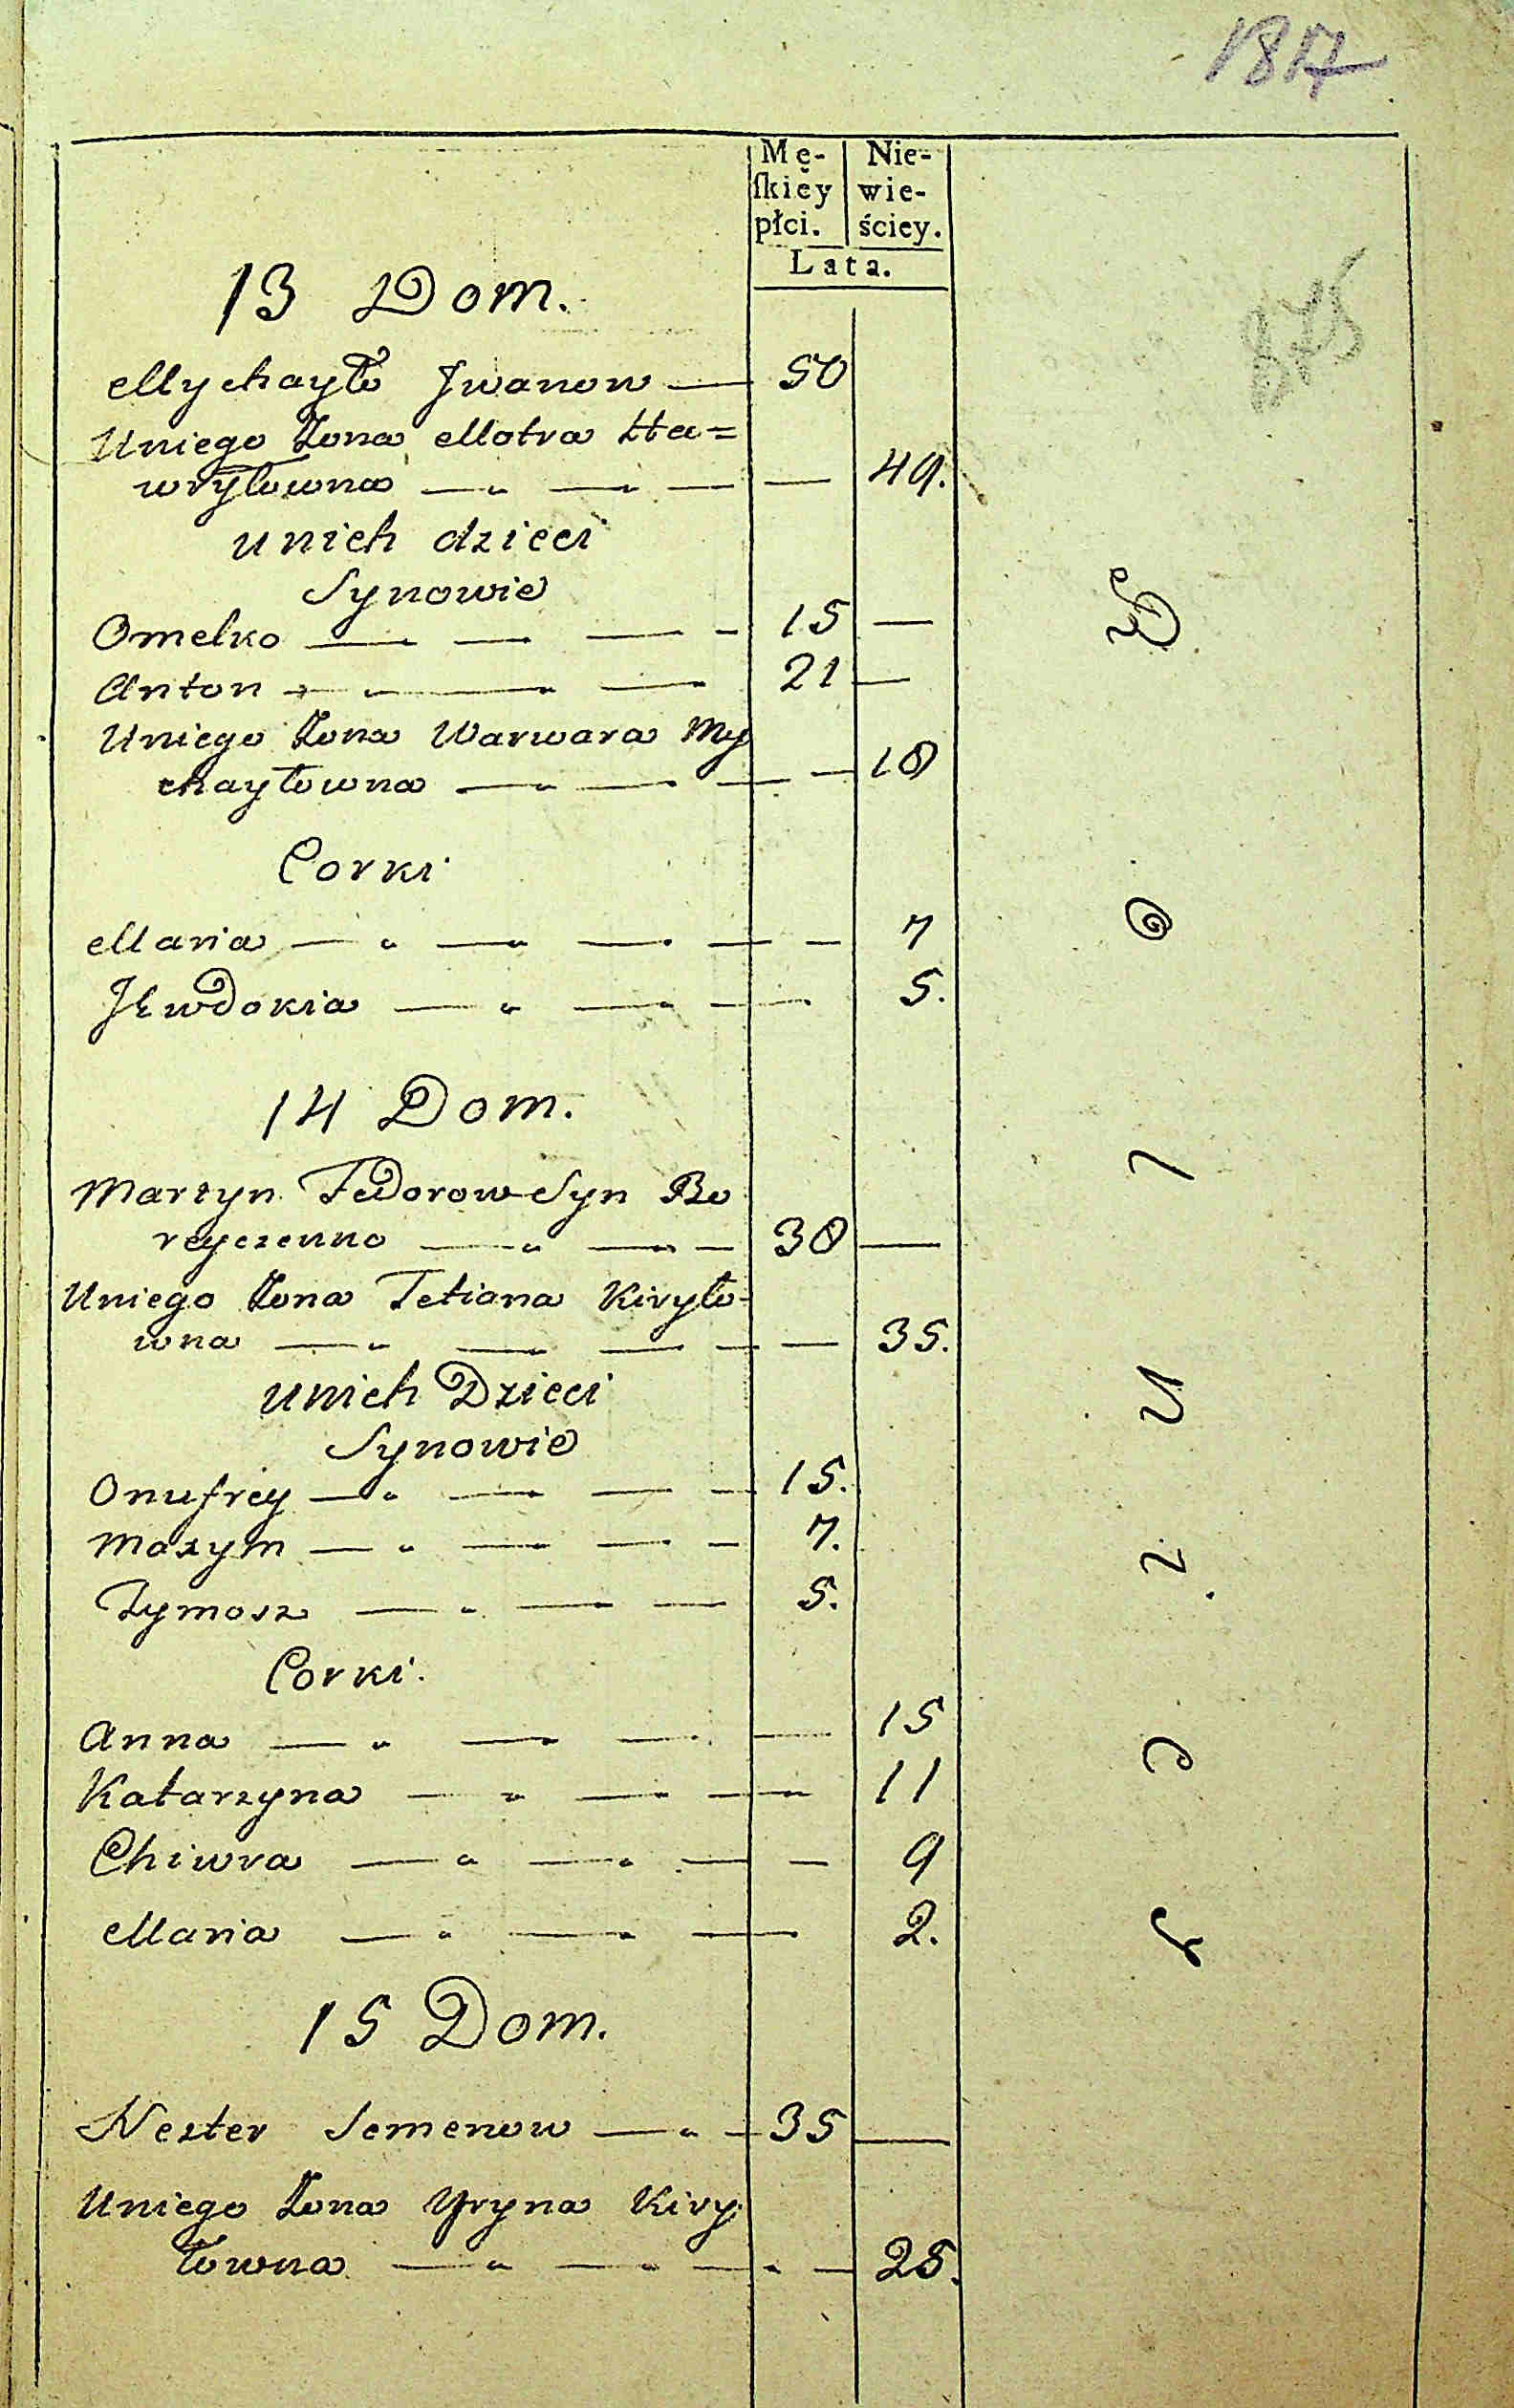 1817
Mę-
skiey
płci.
Nie-
wie-
ściey.
Lata.
13 Dom.
Mychayło Jwanow — 50
Uniego Żona Motra Ha=
wryłowna — 49.
unich dzieci
Synowie
Omelko — 15 —
Anton — 21 —
Uniego Żona Warwara My
chayłowna — 18
Corki
Maria — 7
JEwdokia — 5.
14 Dom.
Marcyn Fedorow Syn Bo
reyczenko — 38 —
Uniego Żona Tetiana Kiryło-
wna — 35.
unich Dzieci
Synowie
Onufrey — 15.
Maxym — 7.
Tymosz — 5.
Corki.
Anna — 15
Katarzyna — 11
Chiwra — 9
Maria — 2.
15 Dom.
Nester Semenow — 35 —
Uniego Żona Yryna Kiry
łowna — 25.